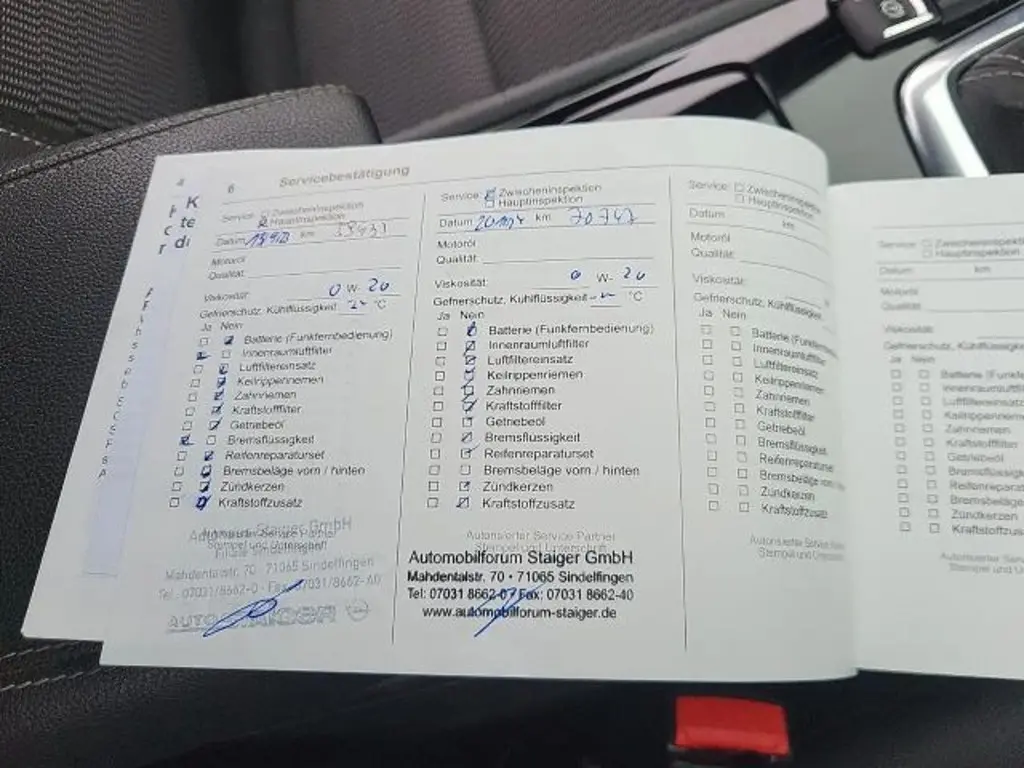 6 Servicebestätigung
Service: Zwischeninspektion
Hauptinspektion
Datum km
Motoröl
Qualität:
Viskosität: 0 W- 20
Gefrierschutz, Kühlflüssigkeit °C
Ja Nein
Batterie (Funkfernbedienung)
Innenraumluftfilter
Luftfiltereinsatz
Keilrippenriemen
Zahnriemen
Kraftstofffilter
Getriebeöl
Bremsflüssigkeit
Reifenreparaturset
Bremsbeläge vorn / hinten
Zündkerzen
Kraftstoffzusatz
Stempel und Unterschrift
Mahdentalstr. 70 · 71065 Sindelfingen
Tel. 07031/8662-0 · Fax 07031/8662-40
AUTO STAIGER
Service: Zwischeninspektion
Hauptinspektion
Datum km 70747
Motoröl
Qualität:
Viskosität: 0 W- 20
Gefrierschutz, Kühlflüssigkeit °C
Ja Nein
Batterie (Funkfernbedienung)
Innenraumluftfilter
Luftfiltereinsatz
Keilrippenriemen
Zahnriemen
Kraftstofffilter
Getriebeöl
Bremsflüssigkeit
Reifenreparaturset
Bremsbeläge vorn / hinten
Zündkerzen
Kraftstoffzusatz
Autorisierter Service Partner
Stempel und Unterschrift
Automobilforum Staiger GmbH
Mahdentalstr. 70 • 71065 Sindelfingen
Tel: 07031 8662-0 / Fax: 07031 8662-40
www.automobilforum-staiger.de
Service: Zwischeninspektion
Hauptinspektion
Datum km
Motoröl
Qualität:
Viskosität:
Gefrierschutz, Kühlflüssigkeit
Ja Nein
Batterie (Funkfernbe
Innenraumluftfilter
Luftfiltereinsatz
Keilrippenriemen
Zahnriemen
Kraftstofffilter
Getriebeöl
Bremsflüssigkeit
Reifenreparaturset
Bremsbeläge vorn
Zündkerzen
Kraftstoffzusatz
Autorisierter Service
Stempel und Unterschri
Service: Zwischeninspektion
Hauptinspektion
Datum km
Motoröl
Qualität:
Viskosität:
Gefrierschutz, Kühlflüssigkeit
Ja Nein
Batterie (Funkfernb
Innenraumluftfilter
Luftfiltereinsatz
Keilrippenriemen
Zahnriemen
Kraftstofffilter
Getriebeöl
Bremsflüssigkeit
Reifenreparaturs
Bremsbeläge
Zündkerzen
Kraftstoffzus
Autorisierter Service
Stempel und Unters